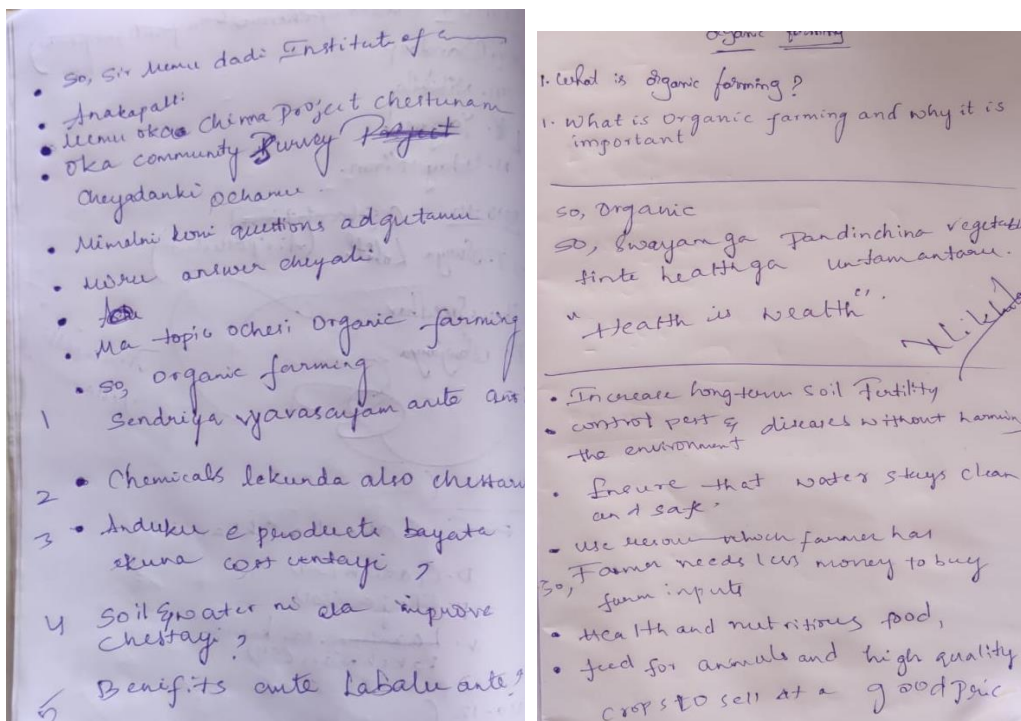 • So, Sir Memu dadi Institute of
• Anakapalli
• Memu oka Chinna Project chestunam
• Oka community Survey Project
Cheyadanki ochamu.
• Mimalni koni questions adgutamu
• Miru answer cheyali
•
• Ma topic ocheri Organic farming
• so, Organic farming
1 Sendriya vyavasayam ante ans
2 • Chemicals lekunda also chestaru
3 • Anduku e products bayata
ekuna cost untayi ?
4 Soil & water ni ela improve
chestayi ?
5 Benifits ante Labalu ante ?
Organic farming
1. What is organic farming?
1. What is Organic farming and why it is
important
So, Organic
So, Swayam ga Pandinchina vegetabl
finte health ga untam antaru.
"Health is wealth".
• Increase long-term Soil Fertility
• control pest & diseases without harming
the environment
• Ensure that water stays clean
and safe.
• use which farmer has
So, Farmer needs less money to buy
farm inputs
• Health and nutritious food,
• feed for animals and high quality
crops to sell at a good price